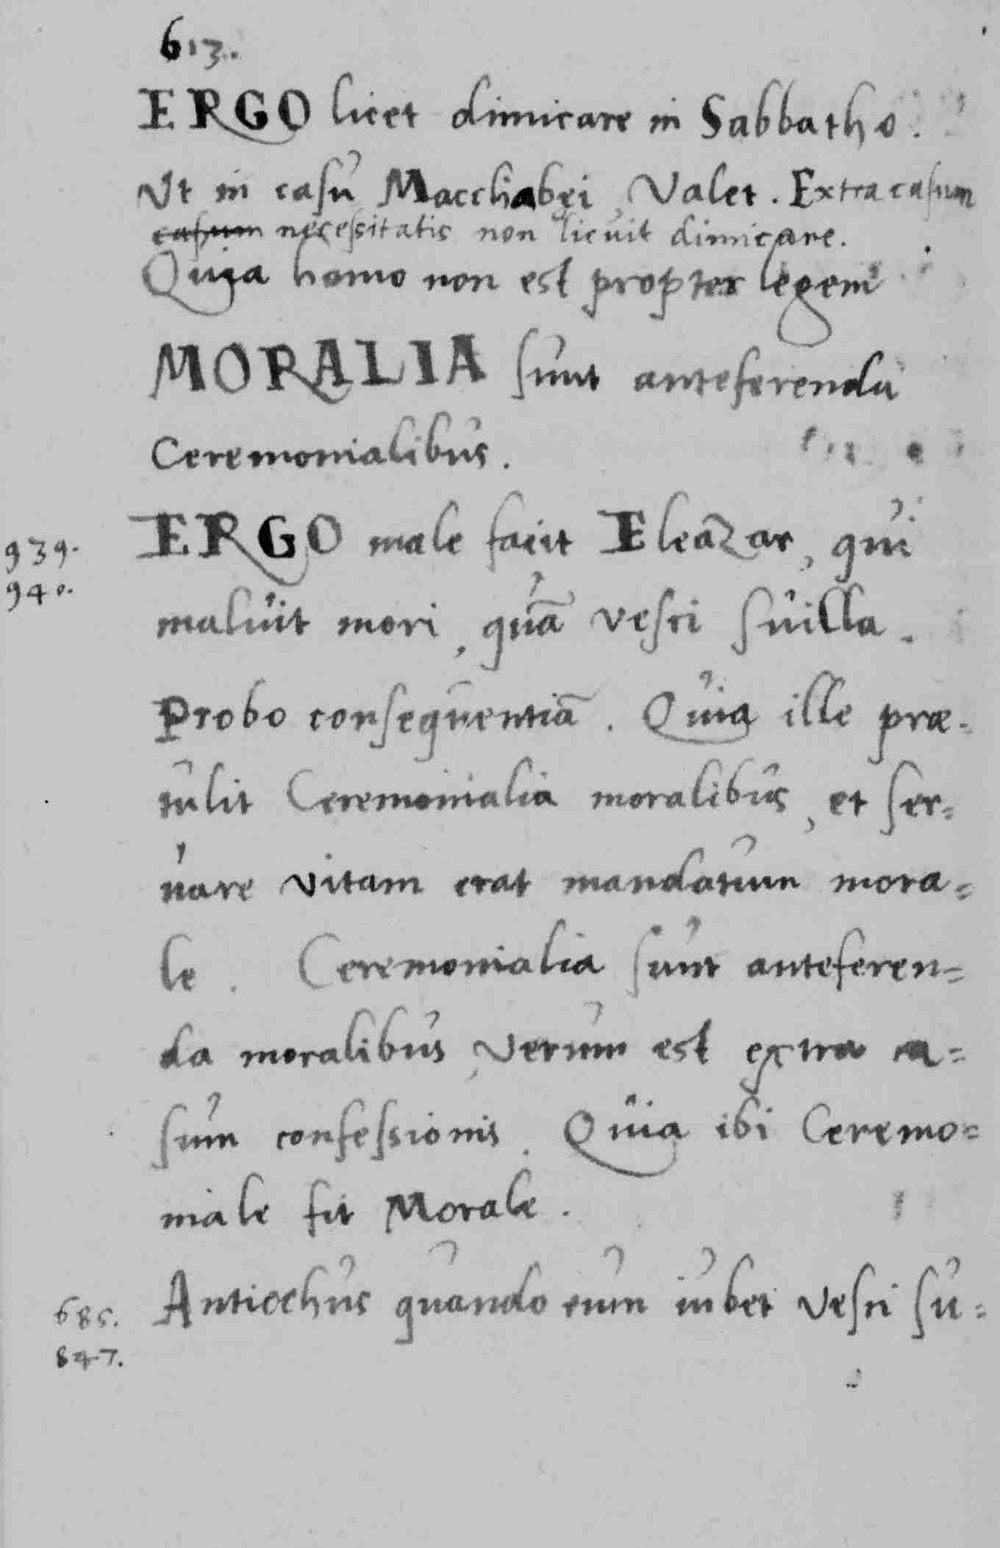 613.
ERGO licet dimicare in Sabbatho.
Vt in casu Macchabei Valet. Extra casum
casum necessitatis non licuit dimicare.
Quia homo non est propter legem
MORALIA sunt anteferenda
Ceremonialibus.
939. ERGO male facit Eleazar, qui
940. maluit mori, quā vesci suilla.
Probo consequentiā. Quia ille præ-
tulit Ceremonialia moralibus, et ser=
uare vitam erat mandatum mora=
le. Ceremonialia sunt anteferen=
da moralibus, verum est extra ca=
sum confessionis. Quia ibi Ceremo=
niale fit Morale.
685. Antiochus quando eum iubet vesci su=
847.